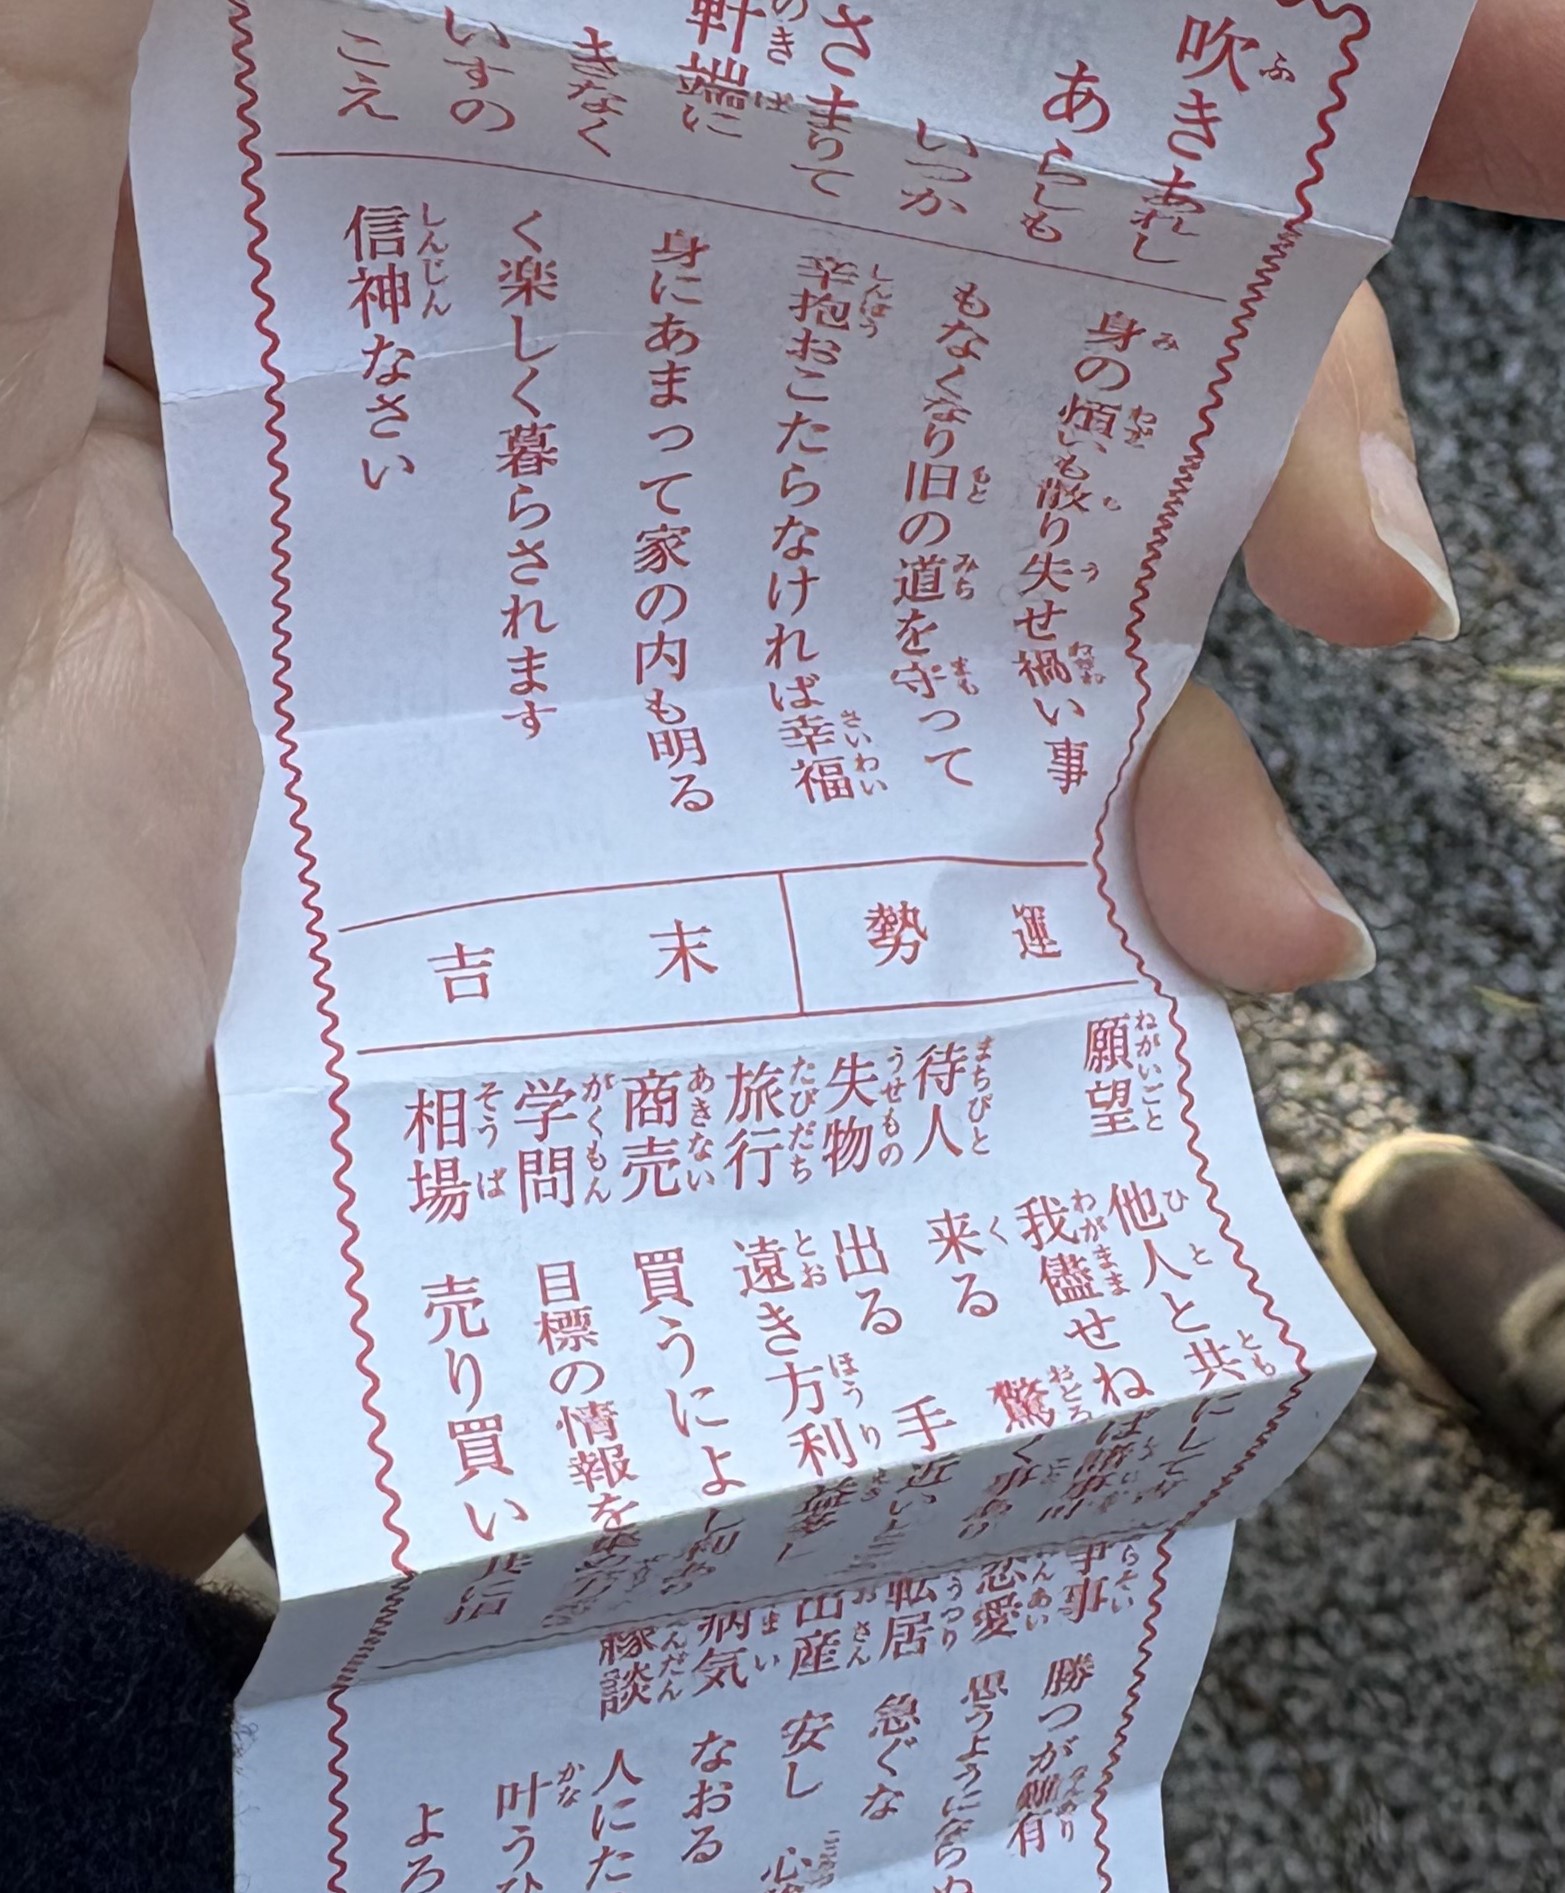 吹きあれし
あらしも
いつか
さまりて
軒端に
きなく
いすの
こえ
身の煩いも散り失せ禍い事
もなくなり旧の道を守って
辛抱おこたらなければ幸福
身にあまって家の内も明る
く楽しく暮らされます
信神なさい
運勢
末吉
願望 他人と共にして
我儘せねば
待人 来る 驚く事あり
失物 出る 手近いところ
旅行 遠き方利益なし
商売 買うによし利あり
学問 目標の情報を
相場 売り買い共に
争事 勝つが
恋愛 思うようにならぬ
転居 急ぐな
出産 安し
病気 なおる
縁談 人にた
叶うひ
よろ